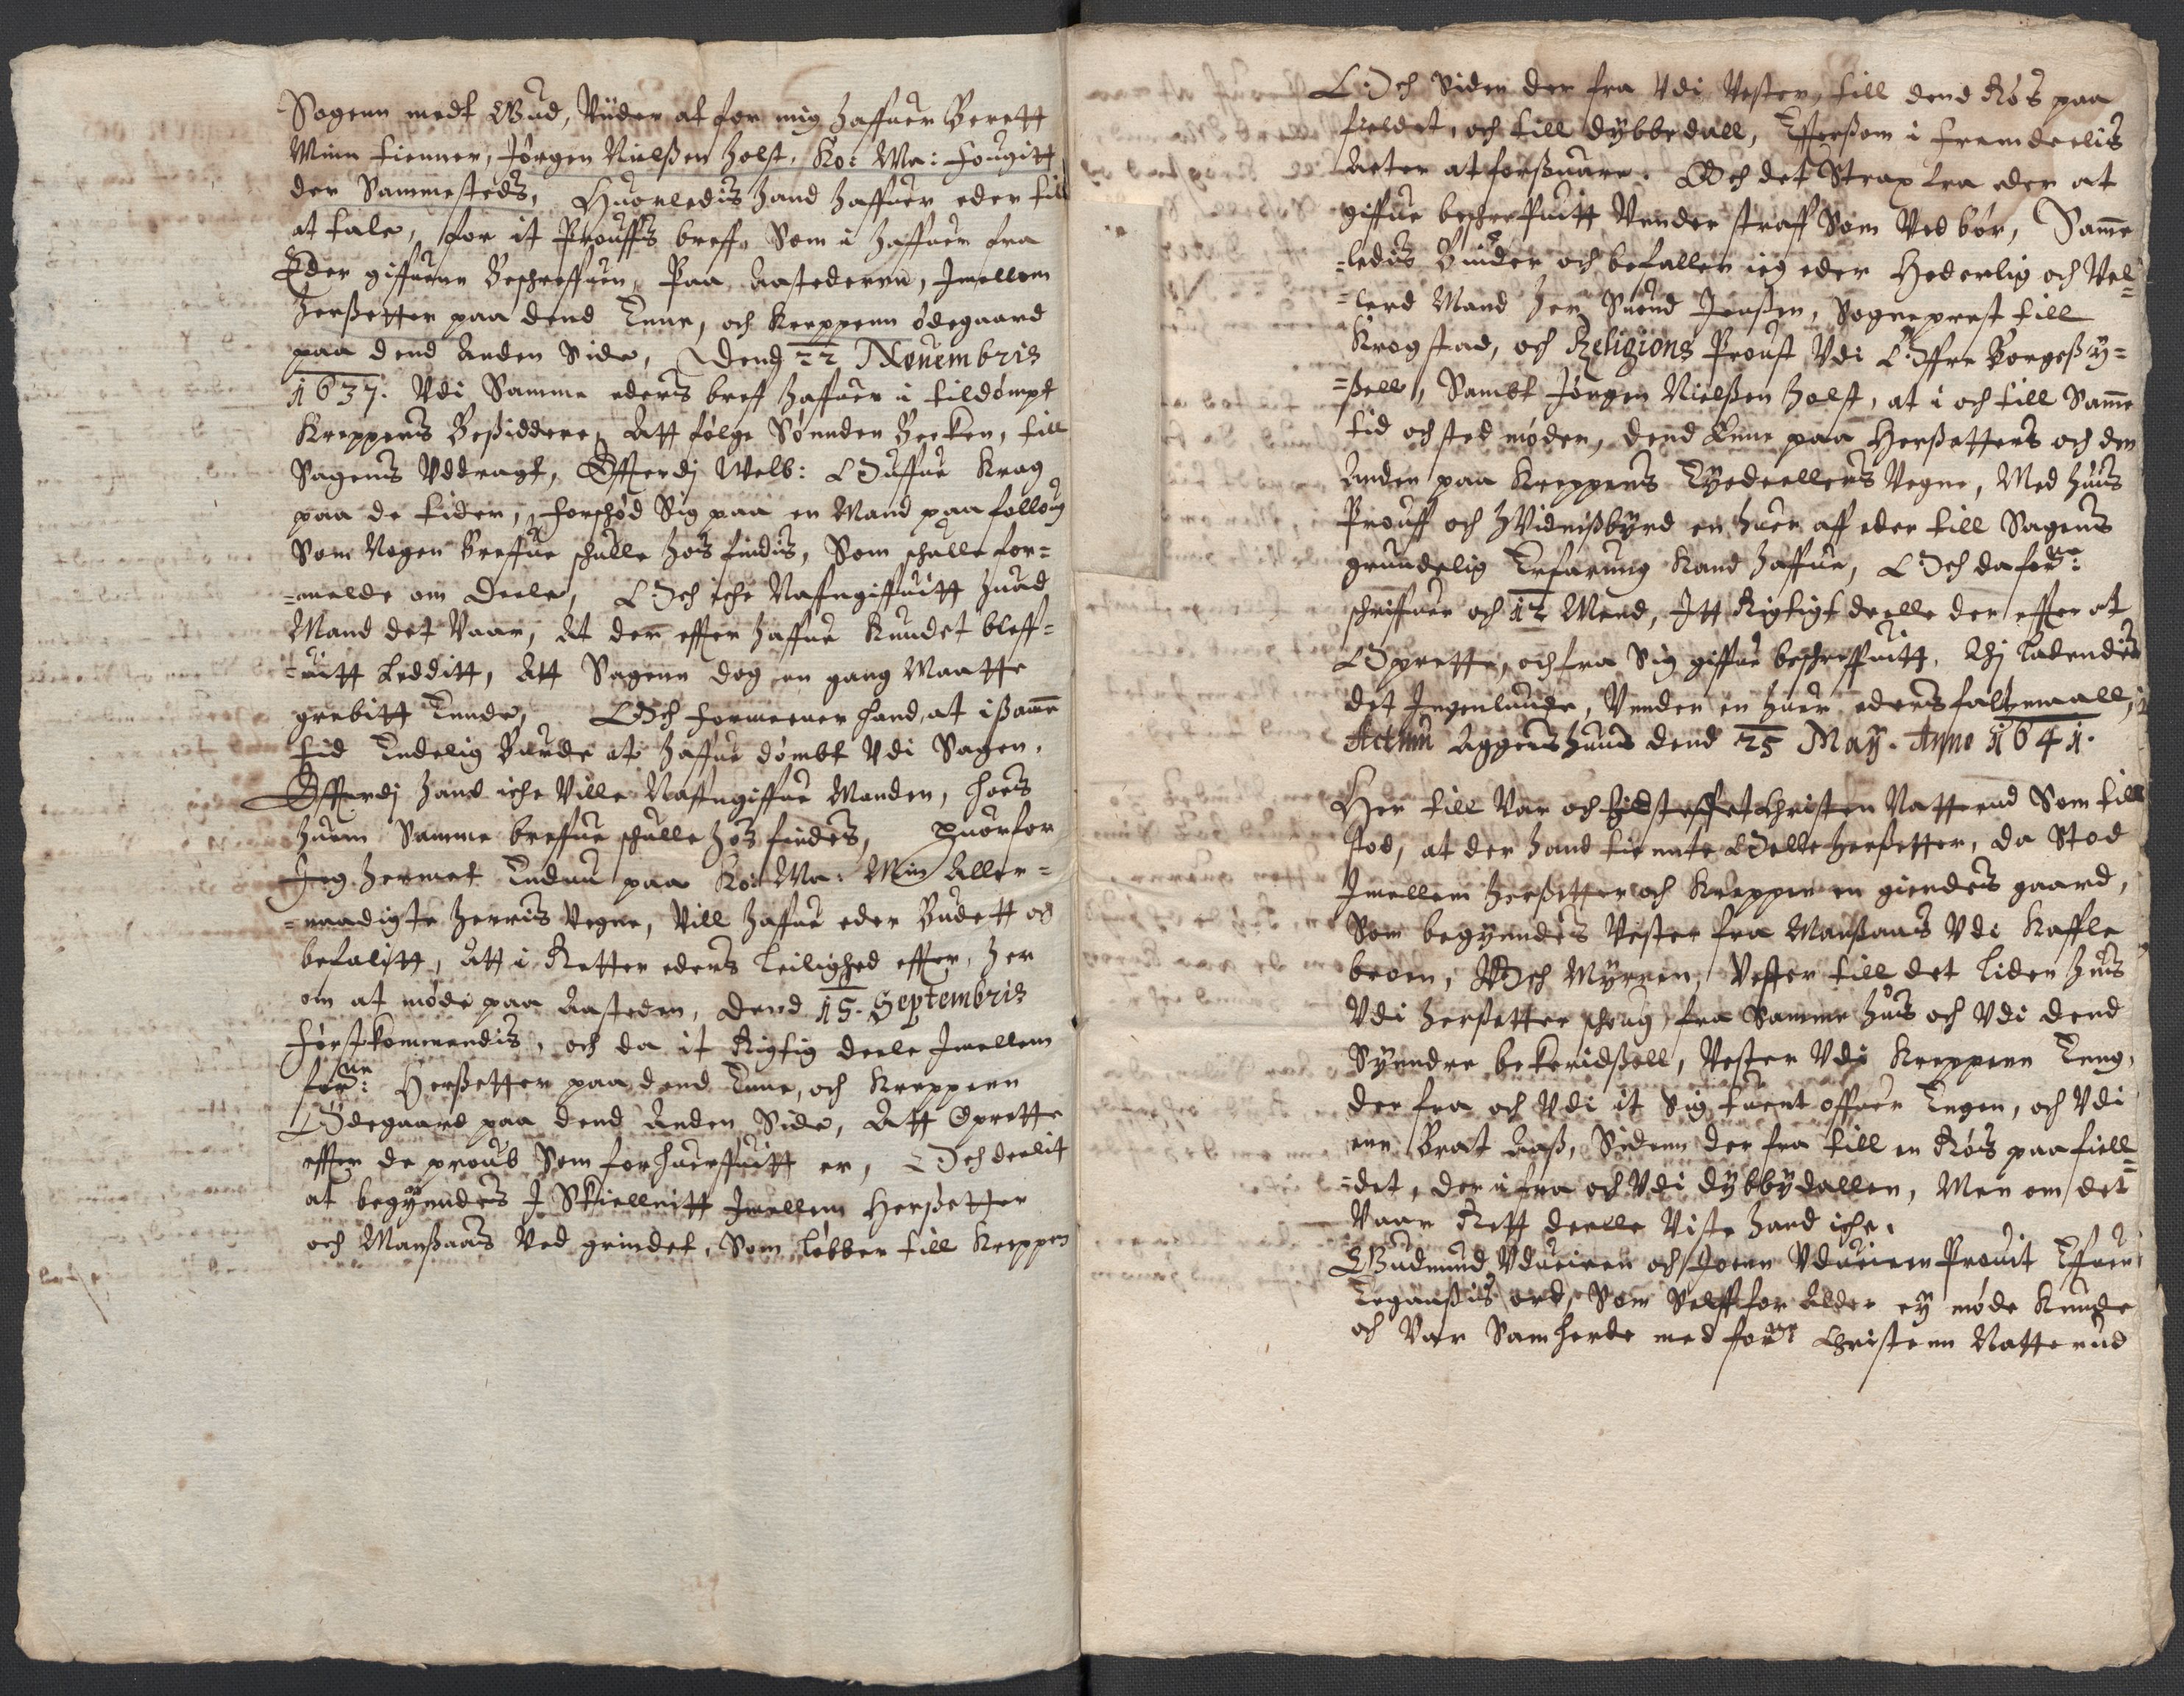 Sogenn medt Gud, Vider at for mig haffuer Berett
Minn tienner, Jørgen Nielßen Holst, Ko: Ma: Fougitt
der Sammesteds, Huorledis hand haffuer eder till
at tale, for it Prouffs breff, Som i haffuer fra
Eder giffuenn Beschreffuen, Paa Aastederne, Imellom
Herßetter paa dend Enne, och Kreppenn ødegaard
paa dend Anden Side, Dend 22 Nouembris
1637. Vdi Samme eders breff haffuer i tildømpt
Kreppens Beßiddere, Att følge Sønnden Becken, till
Sagens Vddragt, Efferdj Welb: Ouffue Krag
paa de tider, forschød Sig paa en Mand paa follou
Som Nogen Breffue schulle hos findis, Som schulle for=
=melde om Deele, Och iche Naffngiffuitt huad
Mand det Vaar, At der effter haffue Kundet bleff=
=uitt Leditt, Att Sagenn dog en gang Maatte
grebitt Ennde, Och formeener hand, at i ßamme
tid Endelig Burde at haffue dømbt Vdi Sagen,
Efferdj hand iche Ville Naffngiffue Manden, hoes
huem Samme breffue schulle hos findes, Huorfor
Jeg hermet Endnu paa Ko: Ma: Min Aller=
=naadigste Herris Vegne, Vill haffue eder Budett og
befalitt, att i Retter eders Leilighed effter, her
om at møde paa Aasteden, Dend 15. Septembris
Førstkommendis, och da it Rigtig deele Imellem
forne: Herßetter paa dend Enne, och Kreppenn
Ødegaard paa dend Anden Side, Att Oprette
effter de proub Som forhuerffuitt er, Och deelit
at begynndes I Skiellnitt Imellem Herßetter
och Manßaas Ved grindet, Som løbber till Kreppen
Och Siden der fra Vdi Vester, till dend Røs paa
fieldet, och till dybbedall, Efterßom i fremdeelis
Acter at forßuare. Och det Strax lra eder at
giffue beschreffuitt Vnder straff Som Ved bør, Samme
=ledis Binder och befaller ieg eder Hederlig och Vel=
=lerd Mand Her Suend Jenßen, Sogneprest till
Krogstad, och Religions Proust Vdi Øffre Borgeßy=
=ßell, Sambt Jørgen Nielßen Holst, at i och till Samme
tid och sted møder, dend Enne paa Herßetters och den
Anden paa Kreppens Eyedeellers Vegne, Med huis
Prouff och Vidnißbyrd en huer aff eder till Sagens
grundelig Erfaring Kand haffue, Och da forne:
schriffuer och 12 Mend, Itt Rigtigt deelle der effter at
Oprette, och fra Sig giffue beschreffuitt, Ej Ladendis
det Ingenlunde, Vnnder en huer eders falsmaall,
Actum Aggershuus dend 25 Maij. Anno 1641.
Her till Var och Christen Natterud Som till
stod, at der hand tiente Ølle Herßetter, da Stod
Imellem Herßetter och Kreppen en gierdes gaard,
Som begynndes Vester fra Manßaas Vdi Kaffle
broen, Och Myrren, Vester till det Liden huus
Vdi Herßetter schoug, fra Samme huus och Vdi dend
Synndre bekeridßell, Vester Vdi Kreppenn Eeng,
der fra och Vdi it Sig tuert offuer Engen, och Vdi
enn Brat Aaß, Sidenn der fra till en Røs paa fiell=
=det, der ifra och Vdi dybbydallen, Men om det
Vaar Rett deelle Viste hand iche.
Gudmund Vdueien och Joenn Vdueienn Prouit Effuen
ord, Som Selff for Alder ey møde Kunde
och Var Samhørde med forne: Christenn Natterud